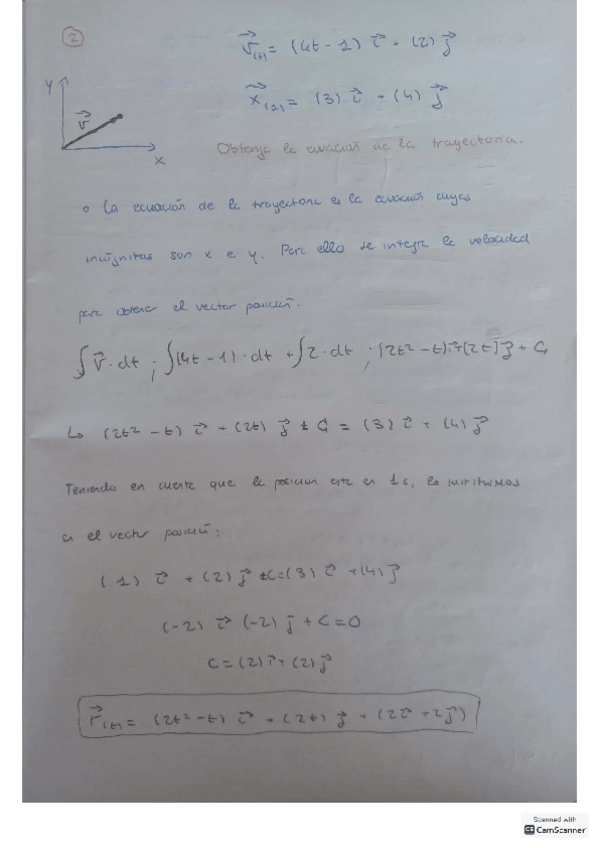 2
v⃗(t) = (4t - 1) i⃗ + (2) j⃗
Y
v⃗
X
x⃗(1) = (3) i⃗ + (4) j⃗
Obtenga la ecuación de la trayectoria.
o La ecuación de la trayectoria es la ecuación cuyas
incógnitas son x e y. Para ello se integra la velocidad
para obtener el vector posición.
∫ v⃗ · dt ; ∫(4t - 1) · dt + ∫ 2 · dt ; (2t² - t) i⃗ + (2t) j⃗ + C
↳ (2t² - t) i⃗ + (2t) j⃗ ± C = (3) i⃗ + (4) j⃗
Teniendo en cuenta que la posición está en 1s, lo
el vector posición:
(1) i⃗ + (2) j⃗ ± C = (3) i⃗ + (4) j⃗
(-2) i⃗ (-2) j⃗ + C = 0
C = (2) i⃗ + (2) j⃗
r⃗(t) = (2t² - t) i⃗ + (2t) j⃗ + (2i⃗ + 2j⃗)
Scanned with
CS CamScanner